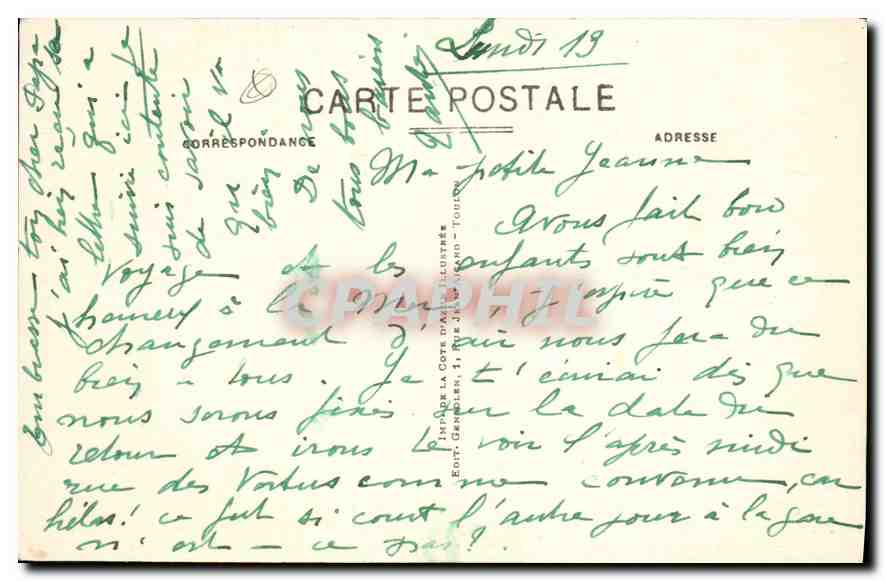 Lundi 19
CARTE POSTALE
CORRESPONDANCE
ADRESSE
Ma petite Jeanne
Avons fait bon
voyage et les enfants sont bien
heureux à la Mer, j'espère que ce
changement d'air nous fera du
bien à tous. Je t'écrirai dès que
nous serons fixés sur la date du
retour et irons te voir l'après midi
rue des Vertus comme convenu, car
hélas! ce fut si court l'autre jour à la gare
n'est-ce pas?
Embrasse ton cher Papa
j'ai bien reçu sa
lettre qui a
suivie ici je
suis contente
de savoir
qu'il va
bien
De nous
tous bons
baisers
IMP. DE LA COTE D'AZUR ILLUSTRÉE
EDIT. 1, RUE JEAN AICARD - TOULON
CPAPHIL